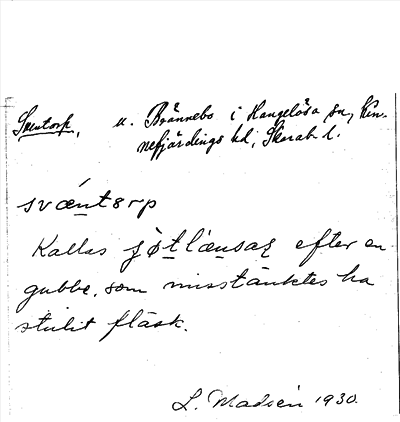 Sventorp, u. Brännebo i Hangelösa sn, Kin-
nefjärdings hd, Skarab. l.
svæntorp
Kallas efter en
gubbe, som misstänktes ha
stulit fläsk.
L. Madsén 1930.